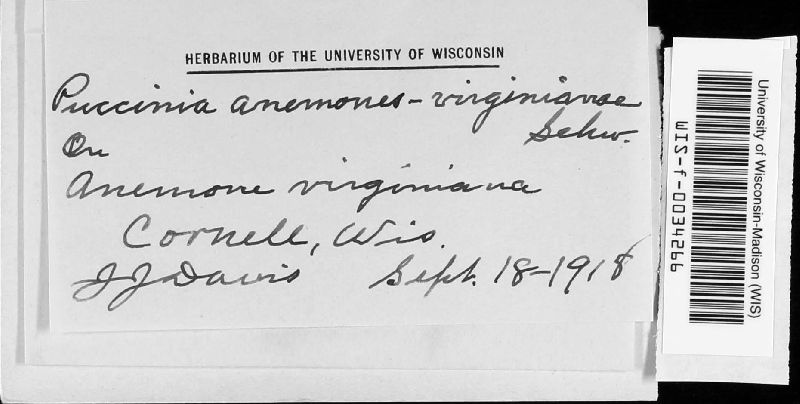 HERBARIUM OF THE UNIVERSITY OF WISCONSIN
Puccinia anemones-virginianae
Schw.
On
Anemone virginiana
Cornell, Wis.
J J Davis Sept. 18-1918
University of Wisconsin-Madison (WIS)
WIS-f-0034266